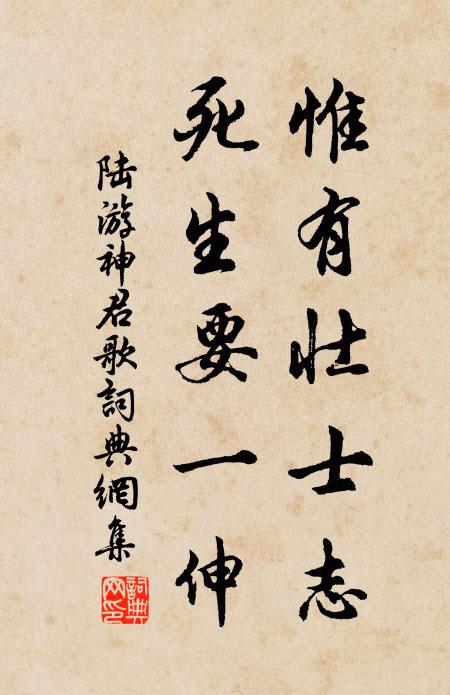 惟有壮士志
死生要一伸
陆游神君歌詞典網集
詞典网印